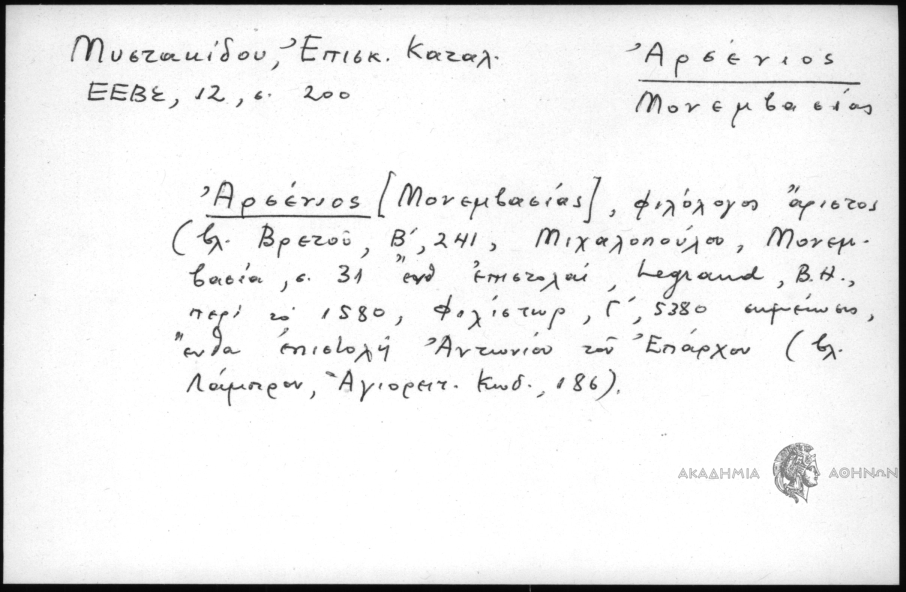 Μυστακίδου, Ἐπισκ. Καταλ.
ΕΕΒΣ, 12, σ. 200
Ἀρσένιος
Μονεμβασίας
Ἀρσένιος [Μονεμβασίας], φιλόλογος ἄριστος
(βλ. Βρετοῦ, Β΄, 241, Μιχαλοπούλου, Μονεμ-
βασία, σ. 31 ἔνθ ἐπιστολαί, Legrand, B.H.,
περί τό 1580, Φιλίστωρ, Γ΄, 5380 σημείωσις,
ἔνθα ἐπιστολή Ἀντωνίου τοῦ Ἐπάρχου (βλ.
Λάμπρου, Ἁγιορειτ. Κωδ., 186).
ΑΚΑΔΗΜΙΑ ΑΘΗΝΩΝ